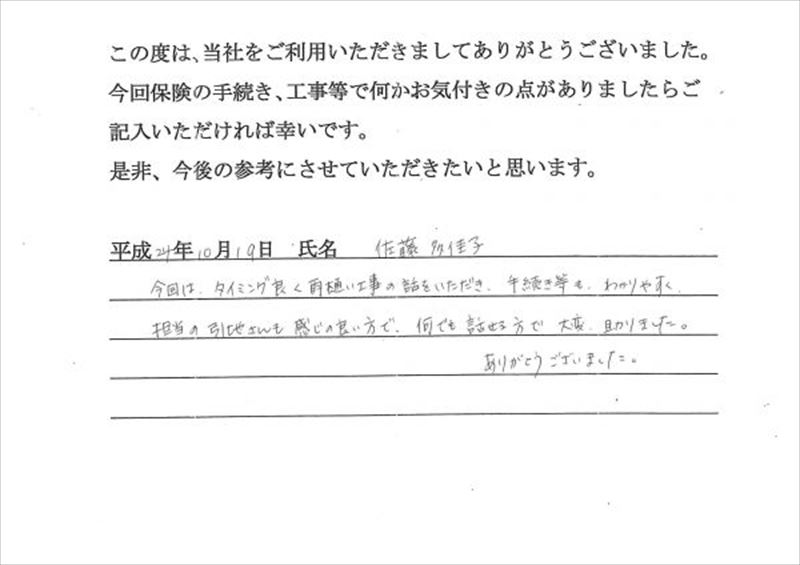 この度は、当社をご利用いただきましてありがとうございました。
今回保険の手続き、工事等で何かお気付きの点がありましたらご
記入いただければ幸いです。
是非、今後の参考にさせていただきたいと思います。
平成24年10月19日 氏名 佐藤 多佳子
今回は、タイミング良く雨樋い工事の話をいただき、手続き等も、わかりやすく、
担当の引地さんも感じの良い方で、何でも話せる方で大変、助りました。
ありがとうございました。